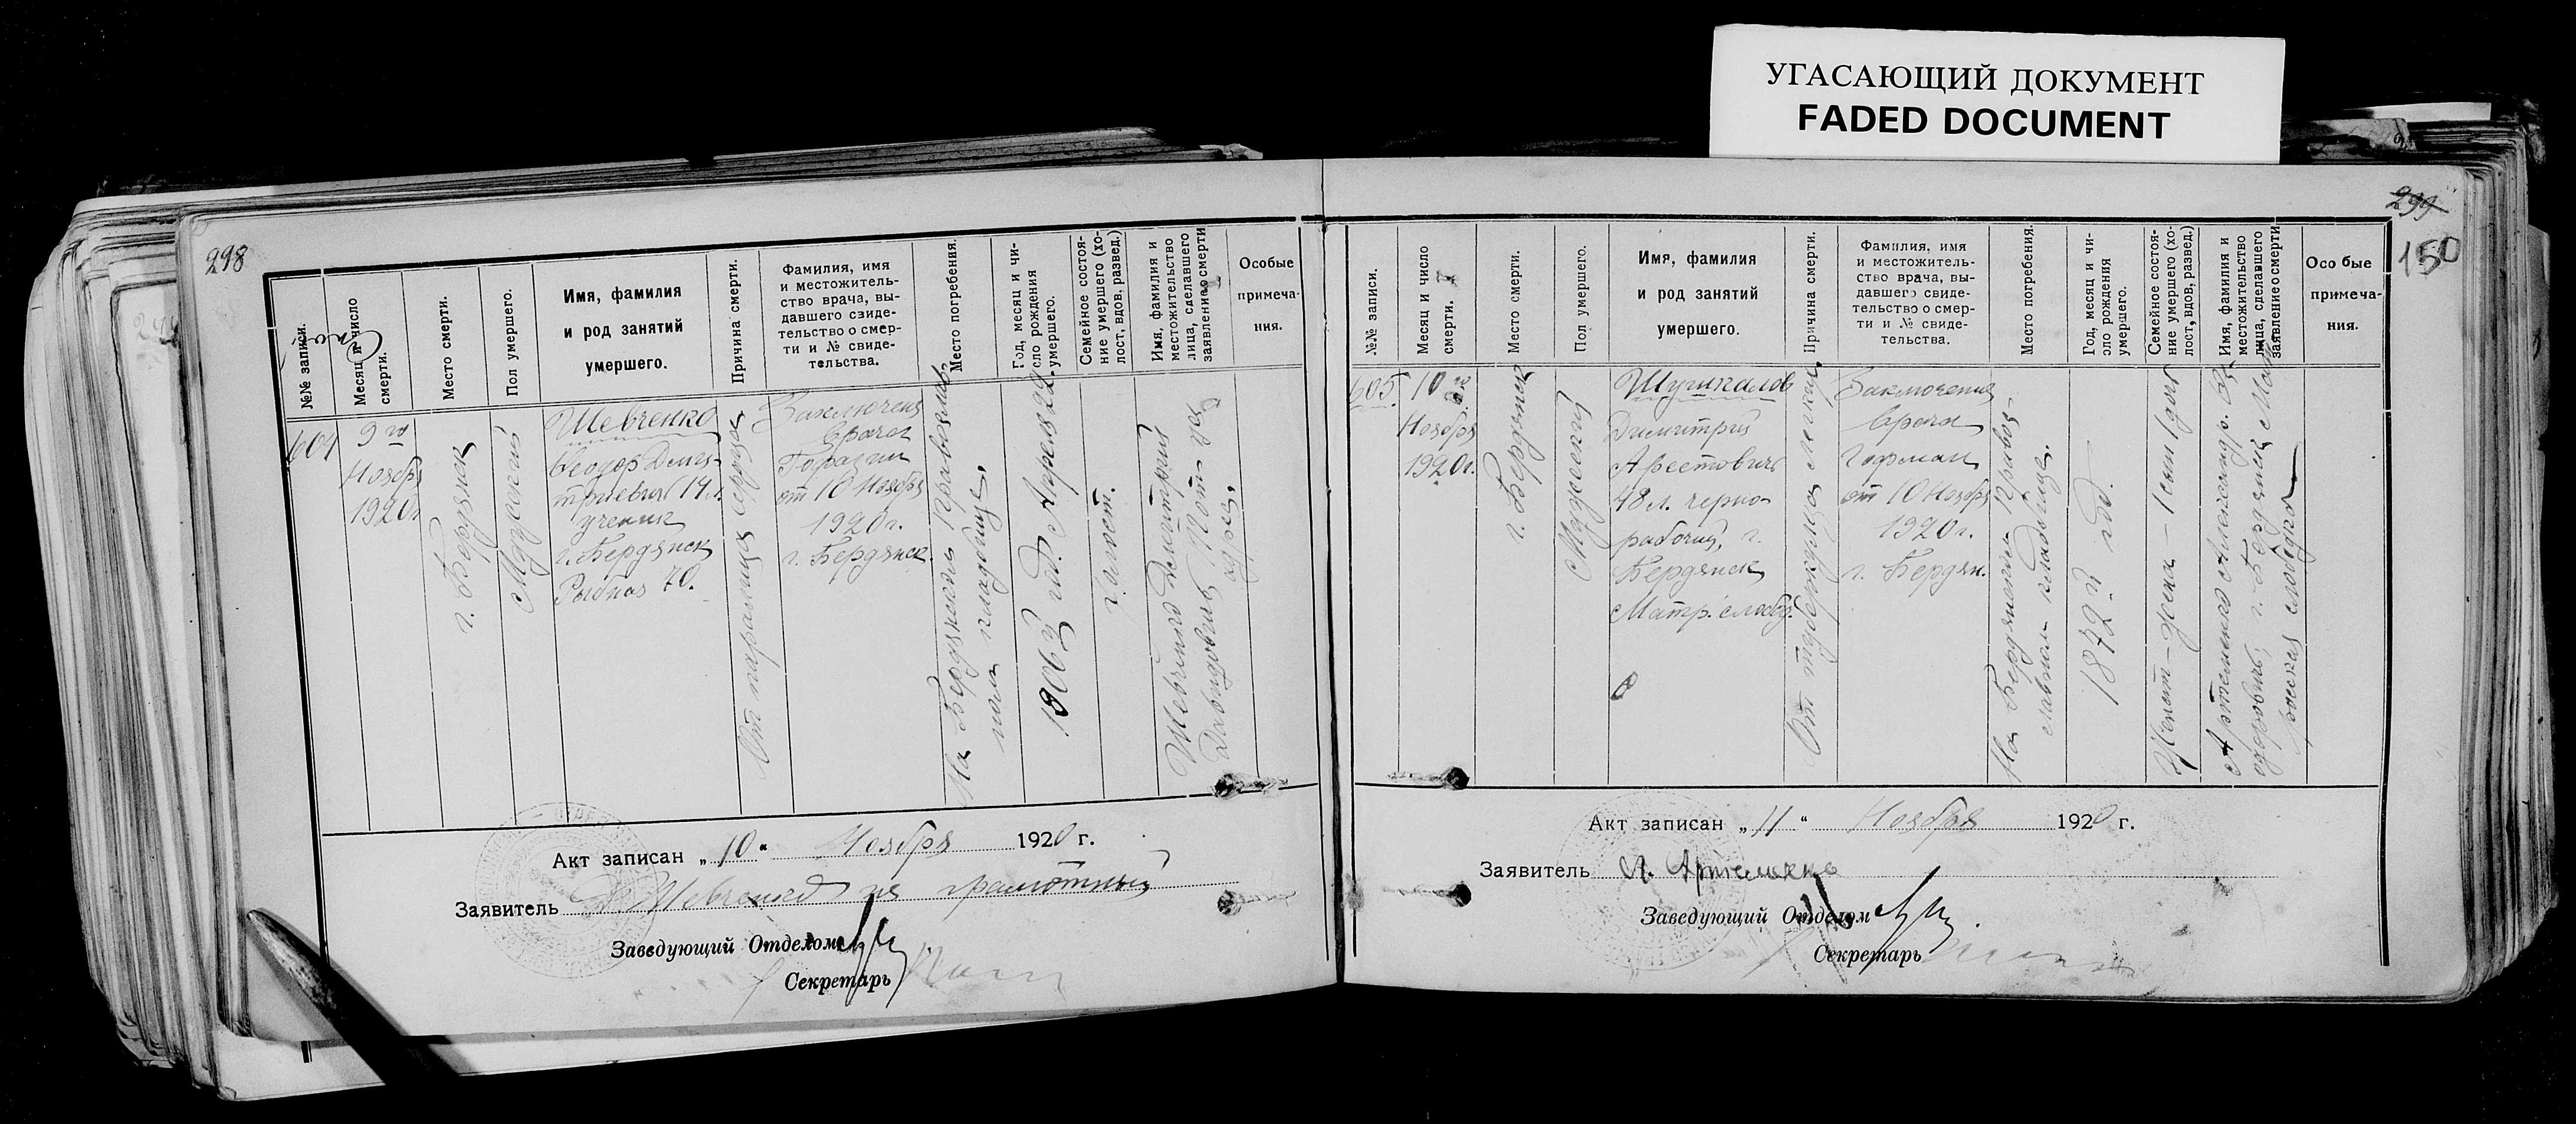 УГАСАЮЩИЙ ДОКУМЕНТ
FADED DOCUMENT
298
№№ записи.
Месяц и число
смерти.
Место смерти.
Пол умершего.
Имя, фамилия
и род занятий
умершего.
Причина смерти.
Фамилия, имя
и местожитель-
ство врача, вы-
давшего свиде-
тельство о смер-
ти и № свиде-
тельства.
Место погребения.
Год, месяц и чи-
сло рождения
умершего.
Семейное состоя-
ние умершего (хо-
лост, вдов, развед.)
Имя, фамилия и
местожительство
лица, сделавшего
заявление о смерти
Особые
примеча-
ния.
604
9 го
Ноября
1920г
г. Бердянск
Мужской
Шевченко
Феодор Дмит-
триевич 14 л.
ученик
г. Бердянск
Рыбная 70.
От паралича сердца
Заключение
врача
от 10 Ноября
1920г.
г. Бердянск.
На Бердянском Православ-
ном кладбище.
1906 й год. Апреля 22
Холост.
Шевченко Дмитрий
Давидович, тот же
адрес.
Акт записан „10“ Ноября 1920 г.
Заявитель Д Шевченко не грамотный
Заведующий Отделом
Секретарь
299
150
№№ записи.
Месяц и число
смерти.
Место смерти.
Пол умершего.
Имя, фамилия
и род занятий
умершего.
Причина смерти.
Фамилия, имя
и местожитель-
ство врача, вы-
давшего свиде-
тельство о смер-
ти и № свиде-
тельства.
Место погребения.
Год, месяц и чи-
сло рождения
умершего.
Семейное состоя-
ние умершего (хо-
лост, вдов, развед.)
Имя, фамилия и
местожительство
лица, сделавшего
заявление о смерти
Особые
примеча-
ния.
605
10 го
Ноября
1920г.
г. Бердянск
Мужской
Шушкалов
Димитрий
Арестович
48 л. черно
рабочий, г.
Бердянск
Матр. слобод.
От туберкулеза легких
Заключение
врача
Гофман
от 10 Ноября
1920г.
г. Бердян.
На Бердянском Право-
славном кладбище.
1872 й год.
Женат – жена – 1 сын 1 дочь
Артеменко Александр
г. Бердянск Мат
росская слободка
Акт записан „11“ Ноября 1920 г.
Заявитель А. Артеменко
Заведующий Отделом
Секретарь